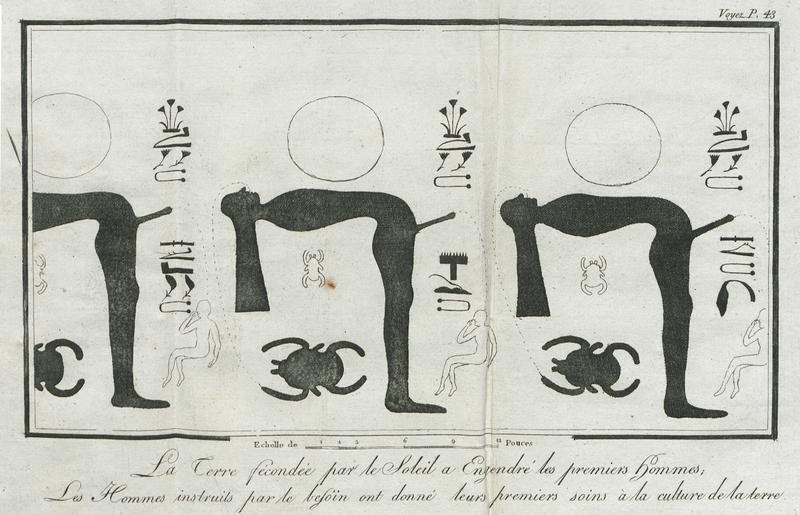 Voyez P. 43
Echelle de 1 2 3 6 9 12 Pouces
La Terre fécondée par le Soleil a Engendré les premiers hommes;
Les Hommes instruits par le besöin ont donné leurs premiers soins à la culture de la terre.